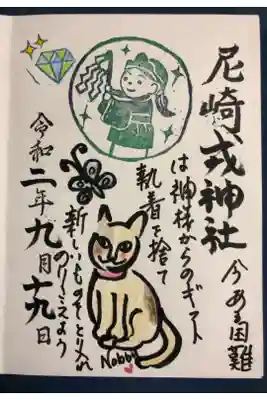 尼崎戎神社
今ある国難
は神様からのギフト
執着を捨て
新しいものをとり入れ
のりこえよう
令和二年九月十九日
Nobby